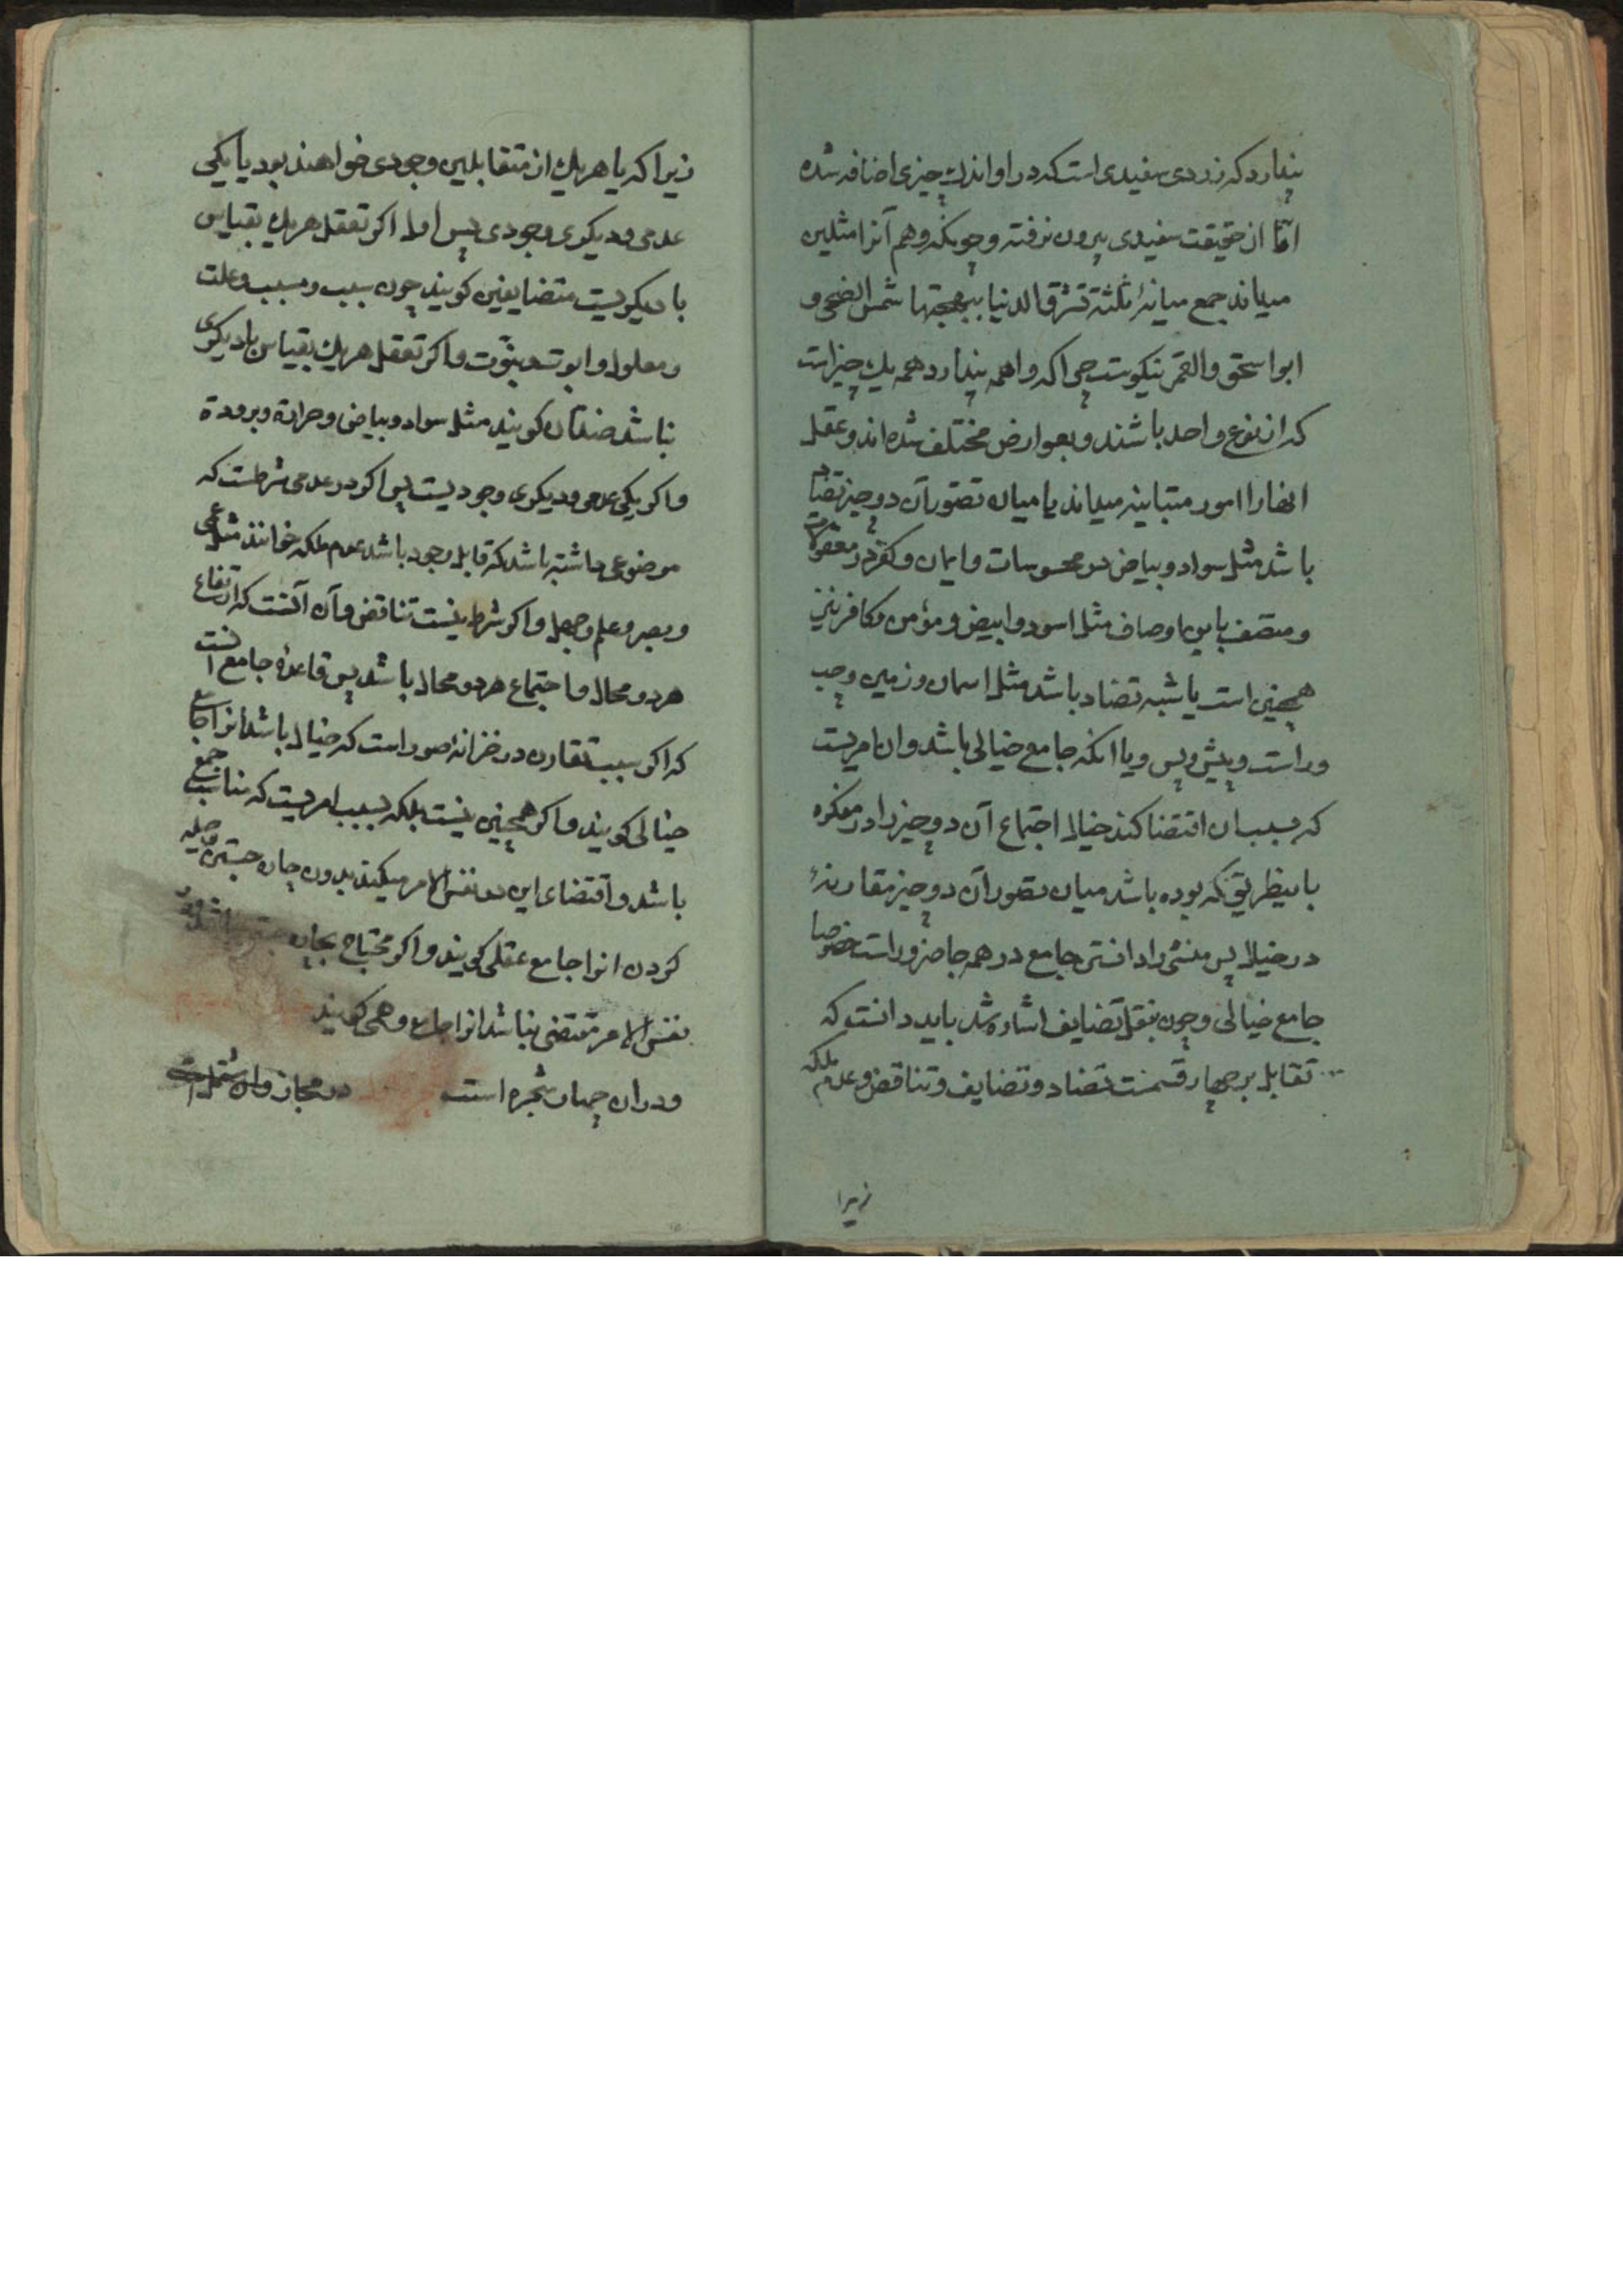 پندارد که زردی سفیدی است که در او اندك چیزی اضافه شده
امّا از حقیقت سفیدی بیرون نرفته و چونکه وهم آنرا مثلین
میداند جمع میانهٔ ثلثة تشرق الدنیا ببهجتها شمس الضحی و
ابو اسحق والقمر نیکوست چرا که واهمه پندارد همه یك چیز است
که از نوع واحد باشند و بعوارض مختلف شده اند و عقل
انها را امور متباینه میداند یا میان تصوّر آن دو چیز تضاد
باشد مثل سواد و بیاض در محسوسات و ایمان و کفر در معقولات
و متصف باین اوصاف مثل اسود و ابیض و مؤمن و کافر نیز
همچنین است یا شبه تضاد باشد مثل اسمان و زمین و چپ
و راست و پیش و پس و یا انکه جامع خیالی باشد و ان امریست
که بسبب ان اقتضا کند خیال اجتماع آن دو چیز را در مفکره
باینطریق که بوده باشد میان تصور آن دو چیز مقارنهٔ
در خیال پس منشی را دانستن جامع در همه جا ضرور است خصوصا
جامع خیالی و چون بنقل تضایف اشاره شد باید دانست که
تقابل بر چهار قسمنت تضاد و تضایف و تناقض و عدم ملکه
زیرا
زیرا که یا هریك از متقابلین وجودی خواهند بود یا یکی
عدمی و دیکری وجودی پس اول اکر تعقل هریك بقیاس
با دیکریست متضایفین کویند چون سبب و مسبب و علت
و معلول و ابوت و بنوّت و اکر تعقل هریك بقیاس با دیکری
نباشد ضدّان کویند مثل سواد و بیاض و حرارة و برودة
و اکر یکی عدمی و دیکری وجودیست پس اکر در عدمی شرطست که
موضوعی داشته باشد که قابل وجود باشد عدم ملکه خوانند مثل عمی
و بصر و علم و جهل و اکر شرط نیست تناقض و آن آنست که ارتفاع
هر دو محال و اجتماع هر دو محال باشد پس قاعدهٔ جامع انست
که اکر بسبب تقارن در خزانهٔ صور است که خیال باشد انرا جامع
خیالی کویند و اکر همچنین نیست بلکه بسبب امریست که مناسب جمع
باشد و اقتضای این در نفس الامر میکند بدون چاره جستن و حیله
کردن انرا جامع عقلی کویند و اکر محتاج بچاره جستن باشد و در
نفس الامر مقتضی نباشد انرا جامع وهمی کویند
و در ان چهار شجره است در مجاز و ان مشتملست